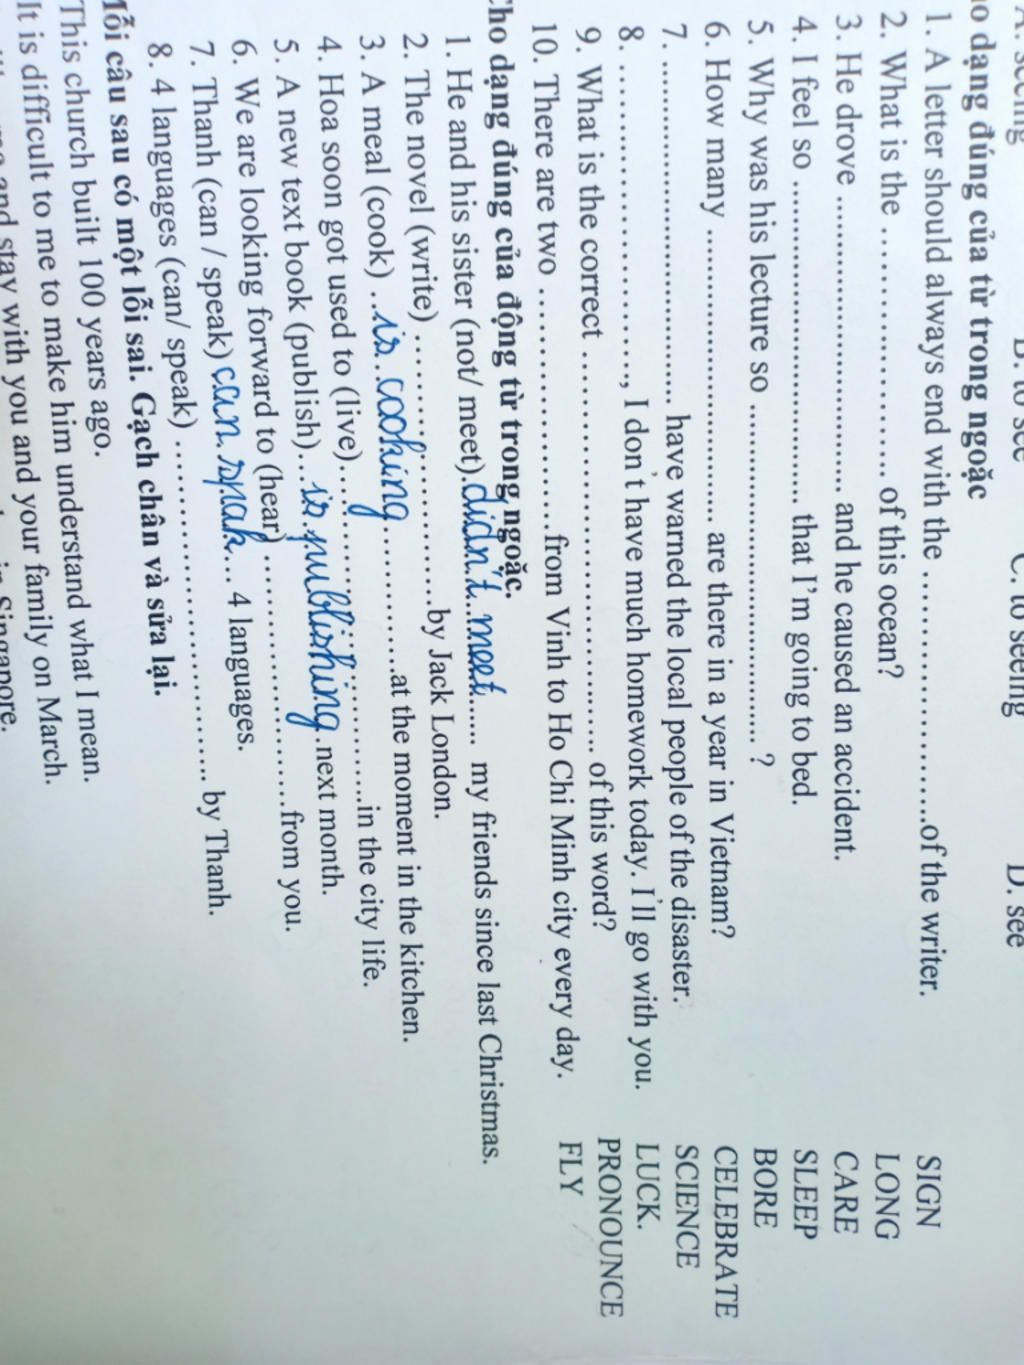 A. seeing B. to see C. to seeing D. see
dạng đúng của từ trong ngoặc
1. A letter should always end with the ........................of the writer. SIGN
2. What is the ........................ of this ocean? LONG
3. He drove ........................ and he caused an accident. CARE
4. I feel so ........................ that I'm going to bed. SLEEP
5. Why was his lecture so ........................ ? BORE
6. How many ........................ are there in a year in Vietnam? CELEBRATE
7. ........................ have warned the local people of the disaster. SCIENCE
8. ........................, I don't have much homework today. I'll go with you. LUCK.
9. What is the correct ........................ of this word? PRONOUNCE
10. There are two ........................from Vinh to Ho Chi Minh city every day. FLY
Cho dạng đúng của động từ trong ngoặc.
1. He and his sister (not/ meet) didn't meet ..... my friends since last Christmas.
2. The novel (write) ........................by Jack London.
3. A meal (cook) ..is cooking............at the moment in the kitchen.
4. Hoa soon got used to (live)........................in the city life.
5. A new text book (publish)...is publishing..next month.
6. We are looking forward to (hear) ........................from you.
7. Thanh (can / speak) can spak... 4 languages.
8. 4 languages (can/ speak) ........................ by Thanh.
Mỗi câu sau có một lỗi sai. Gạch chân và sửa lại.
This church built 100 years ago.
It is difficult to me to make him understand what I mean.
and stay with you and your family on March.
in Singapore.